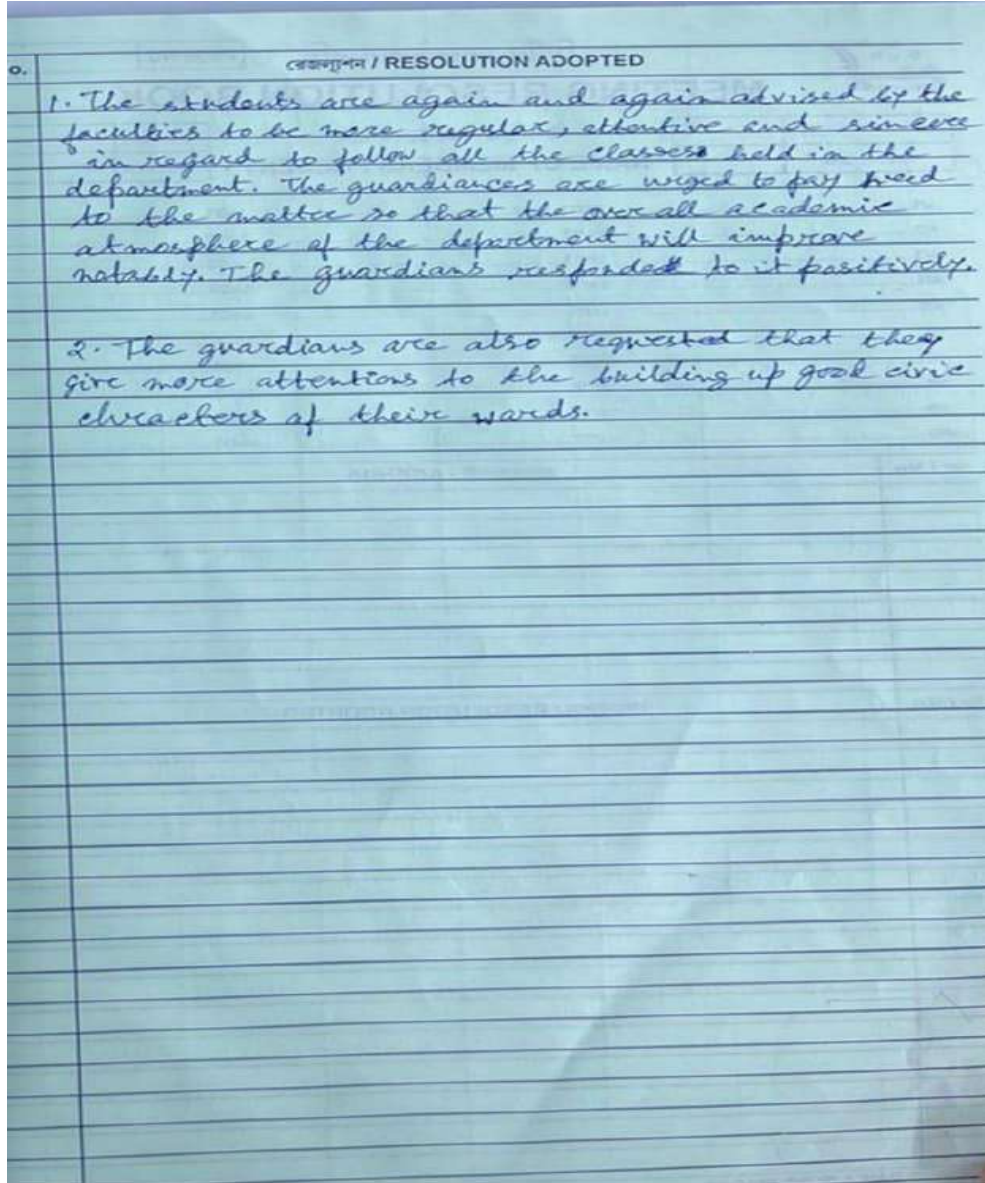 o.
রেজল্যুশন / RESOLUTION ADOPTED
1. The students are again and again advised by the
faculties to be more regular, attentive and sincere
in regard to follow all the classes held in the
department. The guardiances are urged to pay heed
to the matter so that the over all academic
atmosphere of the department will improve
notably. The guardians responded to it positively.
2. The guardians are also requested that they
give more attentions to the building up good civic
chracters of their wards.